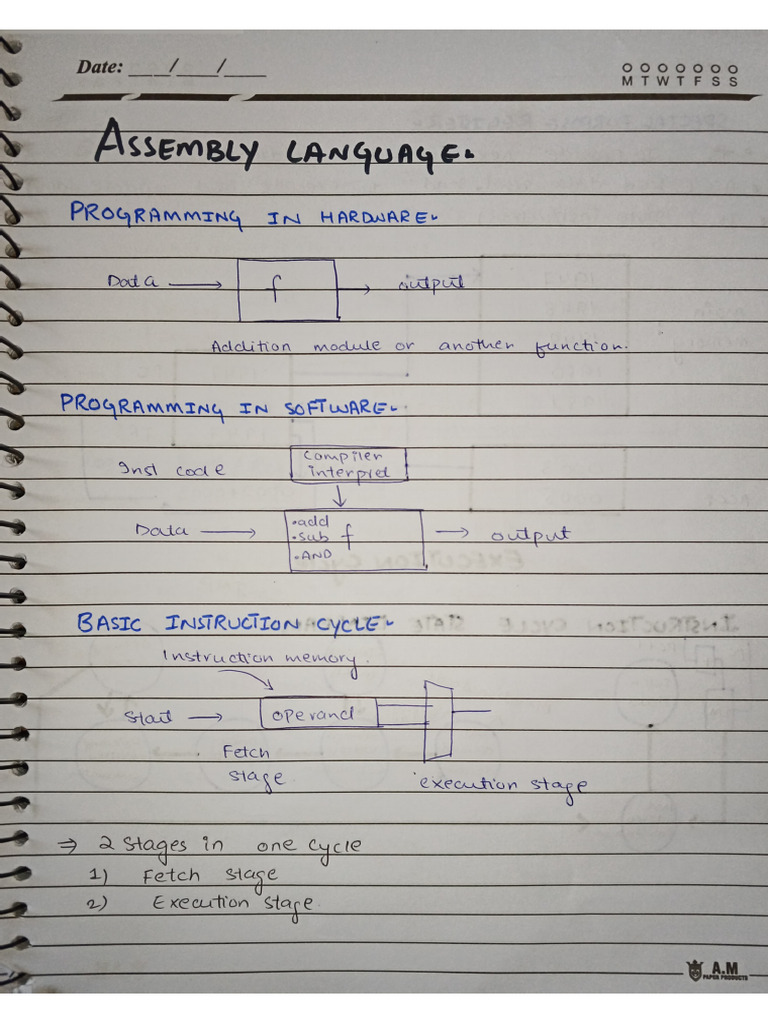 Date: ___/___/___
M T W T F S S
ASSEMBLY LANGUAGE.
PROGRAMMING IN HARDWARE.
Data f output
Addition module or another function.
PROGRAMMING IN SOFTWARE.
Inst code
Compiler
interpret
Data
•add
•sub
•AND
f
output
BASIC INSTRUCTION CYCLE.
Instruction memory.
Start → operand
Fetch
stage
execution stage
⇒ 2 stages in one cycle
1) Fetch stage
2) Execution stage.
A.M
PAPER PRODUCTS